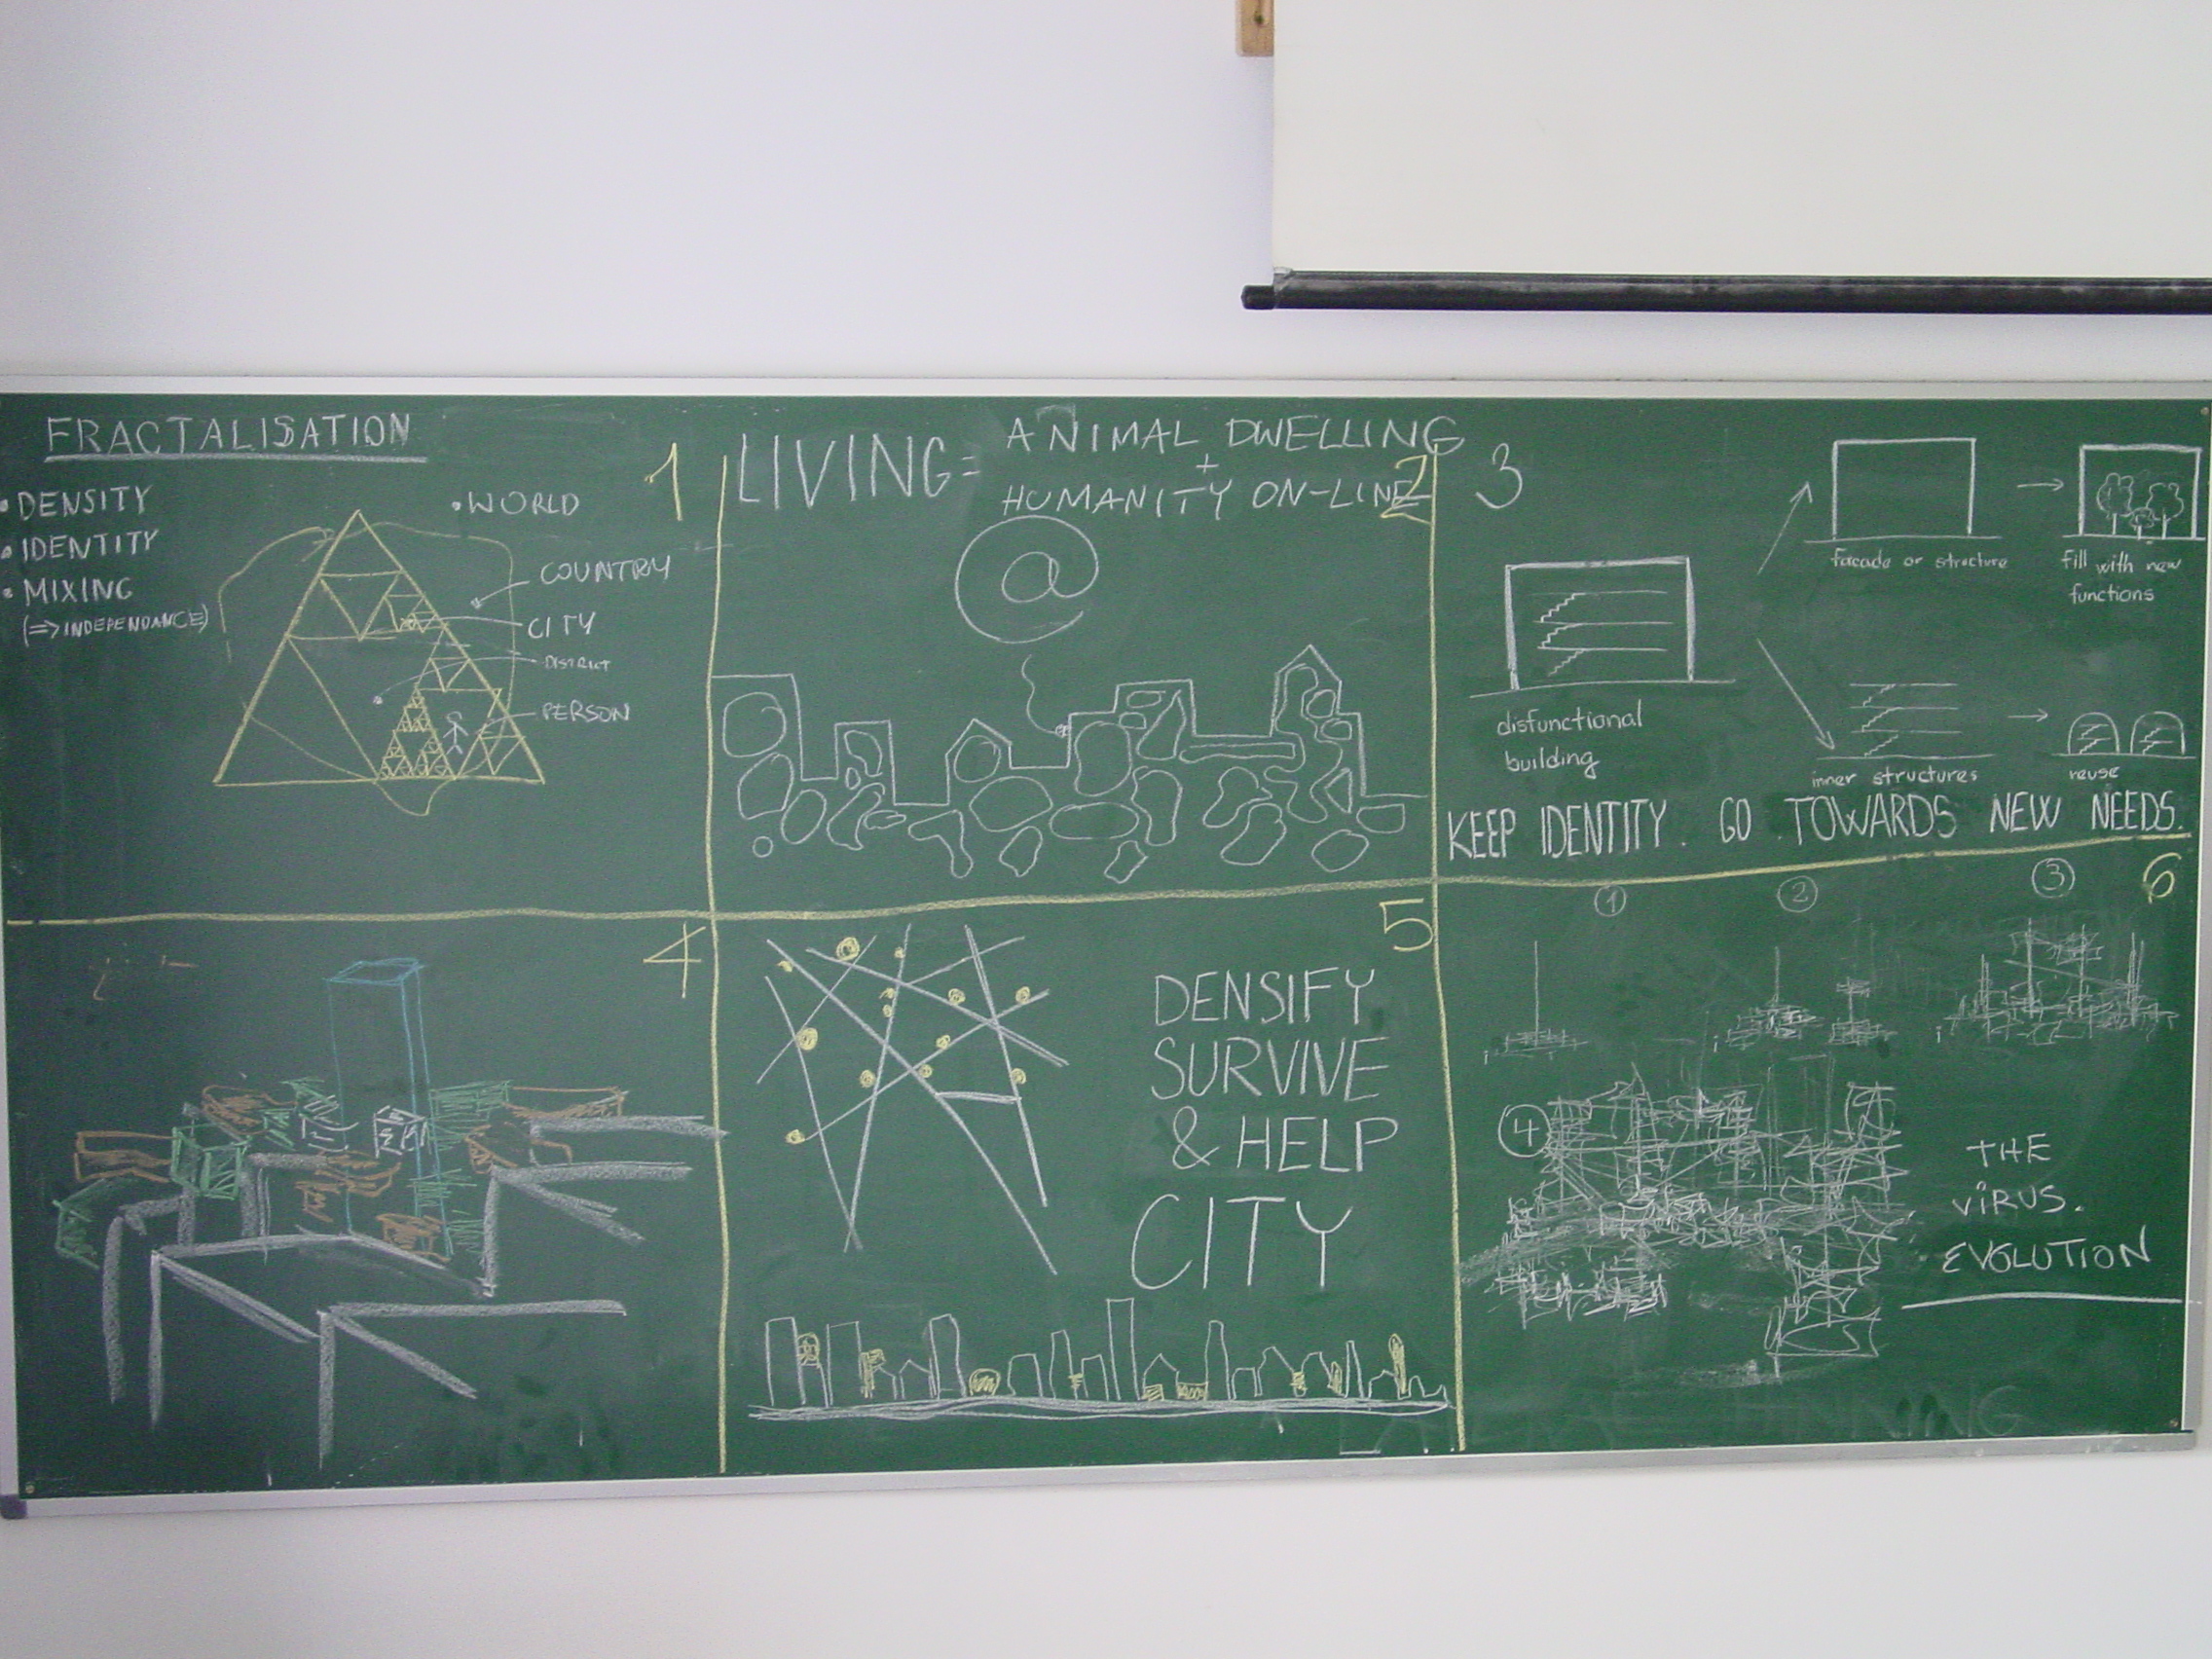 FRACTALISATION
• DENSITY
• IDENTITY
• MIXING
(=> INDEPENDANCE)
• WORLD
COUNTRY
CITY
DISTRICT
PERSON
1
LIVING =
ANIMAL DWELLING
+
HUMANITY ON-LINE
2
@
3
disfunctional
building
facade or structure
fill with new
functions
inner structures
reuse
KEEP IDENTITY. GO TOWARDS NEW NEEDS.
4
5
DENSIFY
SURVIVE
& HELP
CITY
6
1
2
3
4
THE
VIRUS.
EVOLUTION